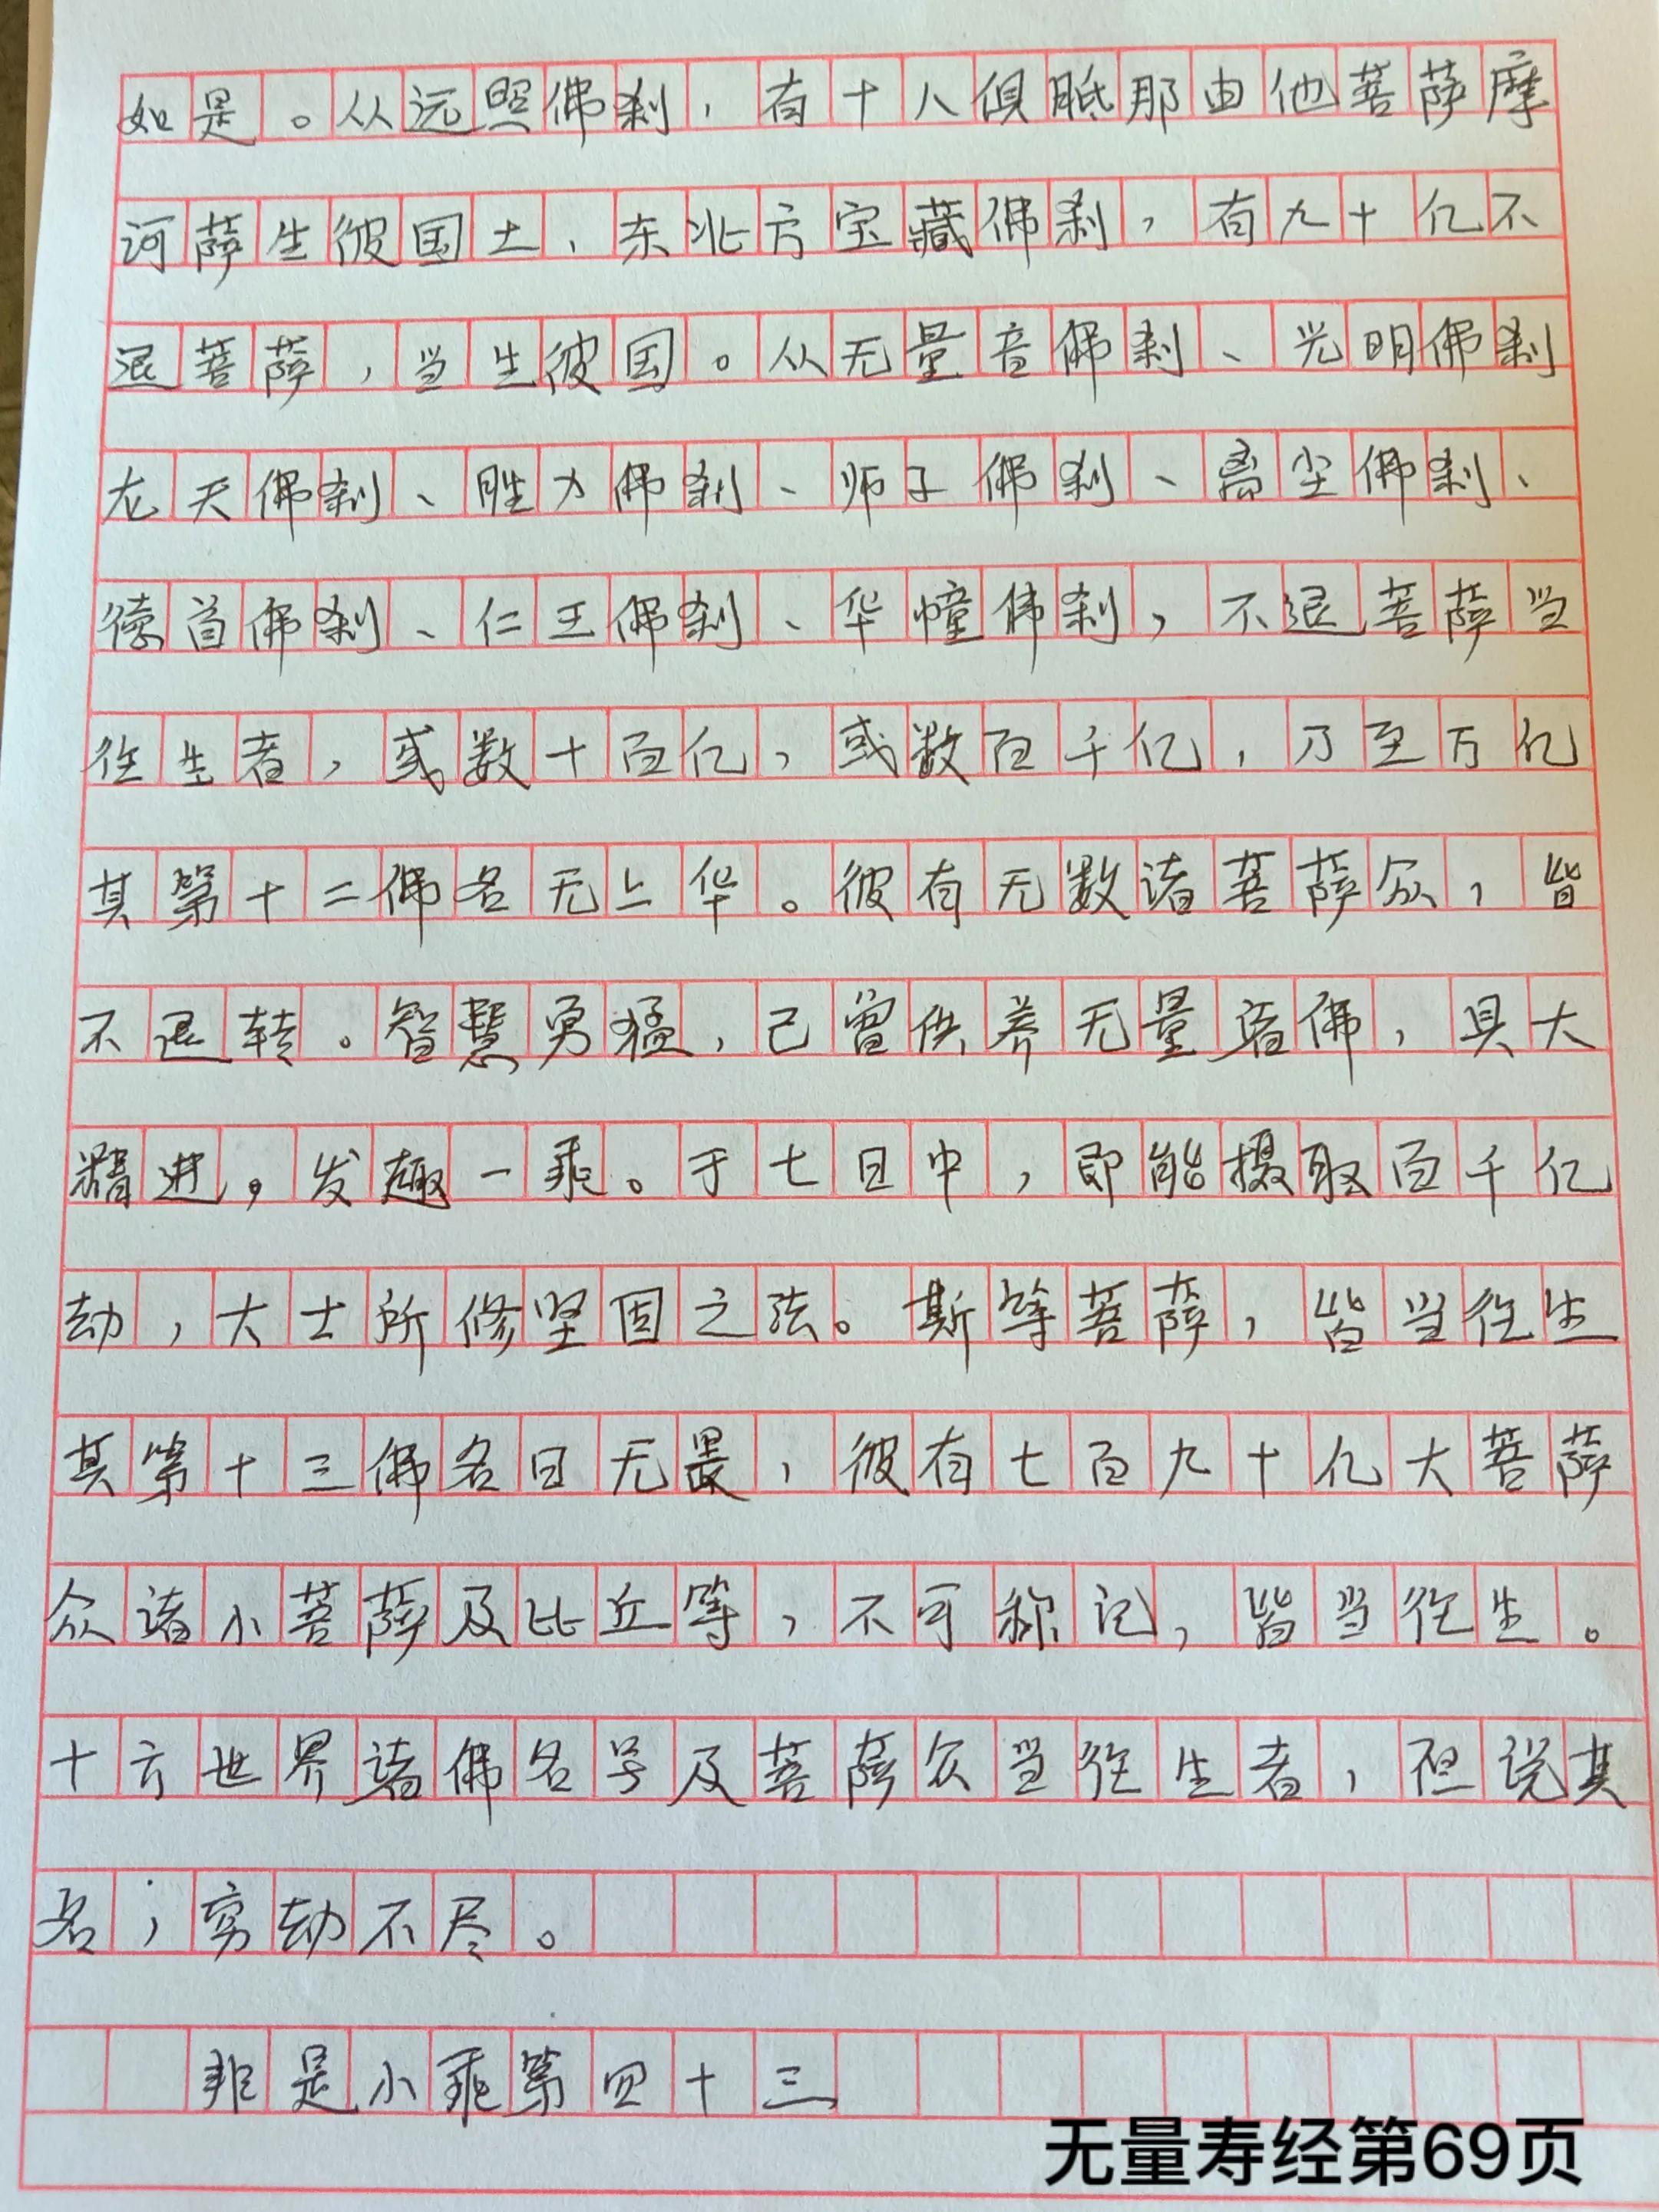 如是。从远照佛刹，有十八俱胝那由他菩萨摩
诃萨生彼国土，东北方宝藏佛刹，有九十亿不
退菩萨，当生彼国。从无量音佛刹、光明佛刹
龙天佛刹、胜力佛刹、师子佛刹、离尘佛刹、
德首佛刹、仁王佛刹、华幢佛刹，不退菩萨当
往生者，或数十百亿，或数百千亿，乃至万亿
其第十二佛名无上华。彼有无数诸菩萨众，皆
不退转。智慧勇猛，已曾供养无量诸佛，具大
精进，发趣一乘。于七日中，即能摄取百千亿
劫，大士所修坚固之法。斯等菩萨，皆当往生
其第十三佛名曰无畏，彼有七百九十亿大菩萨
众诸小菩萨及比丘等，不可称记，皆当往生。
十方世界诸佛名号及菩萨众当往生者，但说其
名；穷劫不尽。
非是小乘第四十三
无量寿经第69页